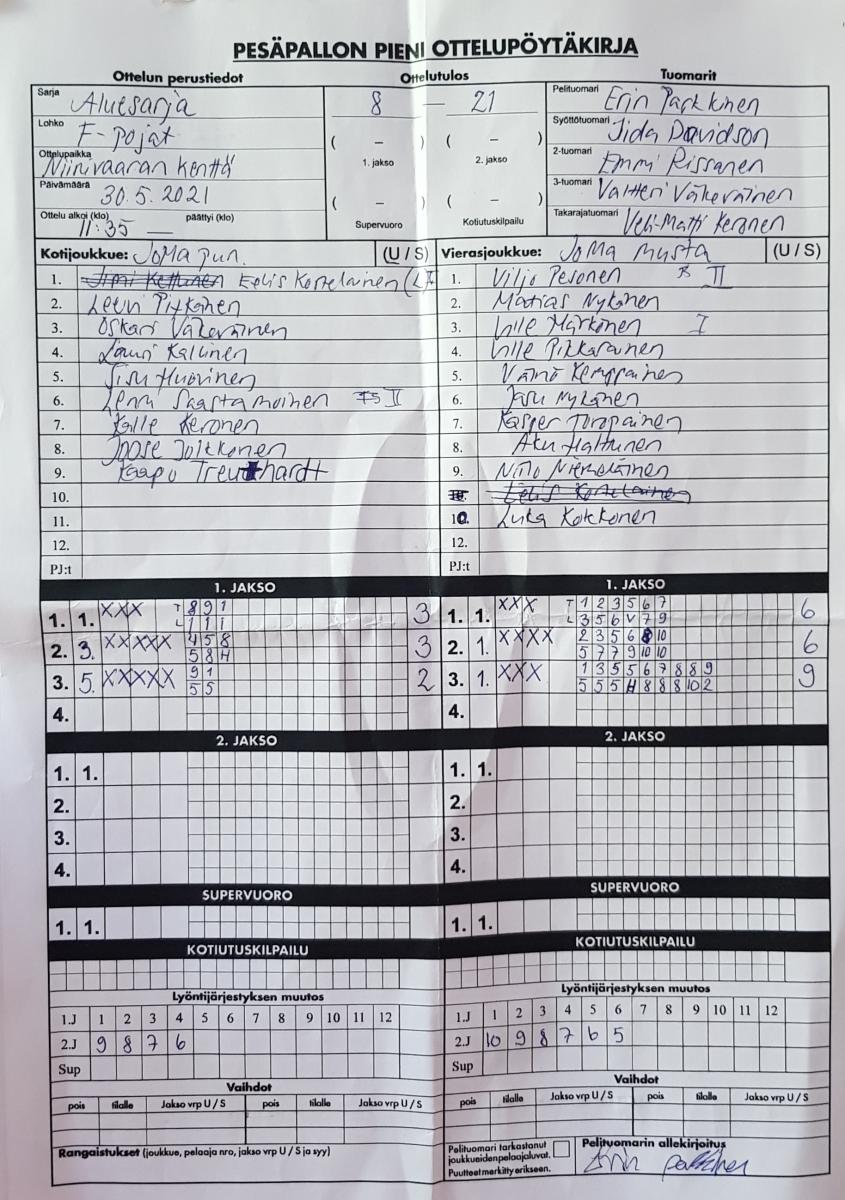 PESÄPALLON PIENI OTTELUPÖYTÄKIRJA
Ottelun perustiedot Ottelutulos Tuomarit
Sarja Aluesarja
Lohko F-pojat
Ottelupaikka Niinivaaran kenttä
Päivämäärä 30.5.2021
Ottelu alkoi (klo) 11:35 — päättyi (klo)
8 — 21
( – ) ( – )
1. jakso 2. jakso
( – ) ( – )
Supervuoro Kotiutuskilpailu
Pelituomari Erin Parkkinen
Syöttötuomari Iida Davidson
2-tuomari Emmi Rissanen
3-tuomari Valtteri Väkeväinen
Takarajatuomari Veli-Matti Keronen
Kotijoukkue: JoMa pun. (U / S)
1. Jimi Kettunen Eelis Kostelainen (L) I
2. Leevi Pitkänen
3. Oskari Väkeväinen
4. Lauri Kallinen
5. Sisu Huovinen
6. Lenni Saastamoinen II
7. Kalle Keronen
8. Joose Jolkkonen
9. Kaapo Treuthardt
10.
11.
12.
PJ:t
Vierasjoukkue: JoMa musta (U / S)
1. Viljo Pesonen II
2. Matias Nykänen
3. Ville Märkönen I
4. Ville Pikkarainen
5. Väinö Kemppainen
6. Jasu Nykänen
7. Kasper Toropainen
8. Aku Halttunen
9. Niilo Niemeläinen
Eelis Kostelainen
10. Luka Kokkonen
12.
PJ:t
1. JAKSO
1. 1. XXX T 8 9 1 3
L 1 1 1
2. 3. XXXXX 4 5 8 3
5 8 H
3. 5. XXXXX 9 1 2
5 5
4.
1. JAKSO
1. 1. XXX T 1 2 3 5 6 7 6
L 3 5 6 V 7 9
2. 1. XXXX 2 3 5 6 8 10 6
5 7 7 9 10 10
3. 1. XXX 1 3 5 5 6 7 8 8 9 9
5 5 5 H 8 8 8 10 2
4.
2. JAKSO
1. 1.
2.
3.
4.
2. JAKSO
1. 1.
2.
3.
4.
SUPERVUORO
1. 1.
SUPERVUORO
1. 1.
KOTIUTUSKILPAILU
KOTIUTUSKILPAILU
Lyöntijärjestyksen muutos
1.J 1 2 3 4 5 6 7 8 9 10 11 12
2.J 9 8 7 6
Sup
Lyöntijärjestyksen muutos
1.J 1 2 3 4 5 6 7 8 9 10 11 12
2.J 10 9 8 7 6 5
Sup
Vaihdot
pois tilalle Jakso vrp U / S pois tilalle Jakso vrp U / S
Vaihdot
pois tilalle Jakso vrp U / S pois tilalle Jakso vrp U / S
Rangaistukset (joukkue, pelaaja nro, jakso vrp U / S ja syy)
Pelituomari tarkastanut
joukkueiden pelaajaluvat.
Puutteet merkitty erikseen.
Pelituomarin allekirjoitus
Erin Parkkinen